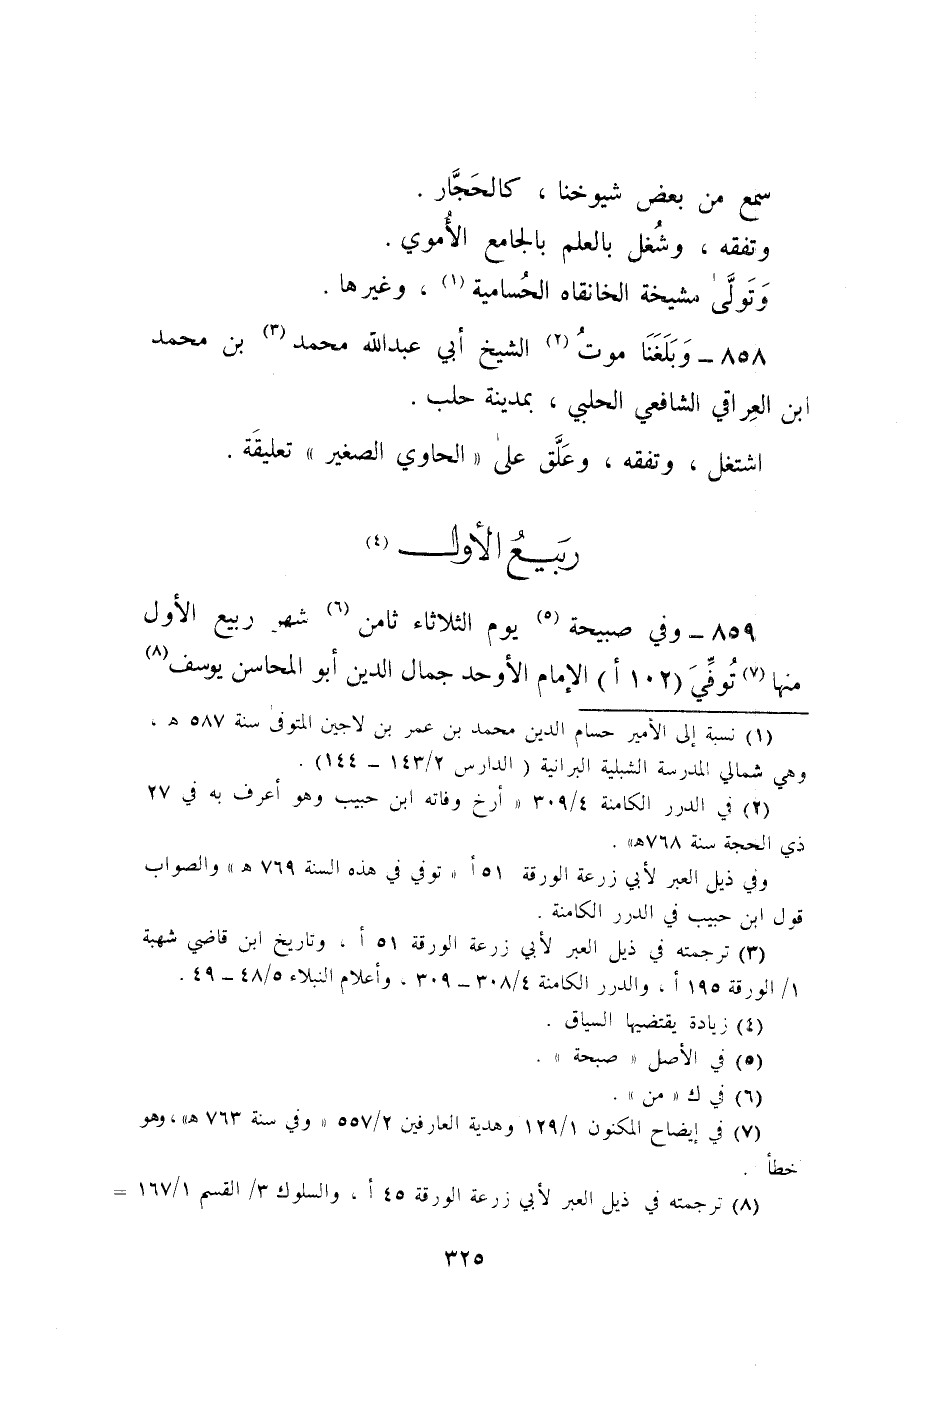 سمع من بعض شيوخنا ، كالحَجَّار .
وتفقه ، وشُغل بالعلم بالجامع الأُموي .
وَتَولَّىٰ مشيخة الخانقاه الحُسامية (١) ، وغيرها .
٨٥٨ ـ وَبَلَغَنَا موتُ (٢) الشيخ أبي عبدالله محمد (٣) بن محمد
ابن العِراقي الشافعي الحلبي ، بمدينة حلب .
اشتغل ، وتفقه ، وعَلَّق علىٰ « الحاوي الصغير » تعليقَة .
ربَيـعُ الأولـــ (٤)
٨٥٩ ـ وفي صبيحة (٥) يوم الثلاثاء ثامن (٦) شهر ربيع الأول
منها (٧) تُوفِّيَ (١٠٢ أ) الإمام الأوحد جمال الدين أبو المحاسن يوسف (٨)
(١) نسبة إلى الأمير حسام الدين محمد بن عمر بن لاجين المتوفىٰ سنة ٥٨٧ هـ ،
وهي شمالي المدرسة الشبلية البرانية ( الدارس ١٤٣/٢ ـ ١٤٤) .
(٢) في الدرر الكامنة ٣٠٩/٤ « أرخ وفاته ابن حبيب وهو أعرف به في ٢٧
ذي الحجة سنة ٧٦٨هـ» .
وفي ذيل العبر لأبي زرعة الورقة ٥١ أ « توفي في هذه السنة ٧٦٩ هـ » والصواب
قول ابن حبيب في الدرر الكامنة .
(٣) ترجمته في ذيل العبر لأبي زرعة الورقة ٥١ أ ، وتاريخ ابن قاضي شهبة
١/ الورقة ١٩٥ أ ، والدرر الكامنة ٣٠٨/٤ ـ ٣٠٩ ، وأعلام النبلاء ٤٨/٥ ـ ٤٩ .
(٤) زيادة يقتضيها السياق .
(٥) في الأصل « صبحة » .
(٦) في ك « من » .
(٧) في إيضاح المكنون ١٢٩/١ وهدية العارفين ٥٥٧/٢ « وفي سنة ٧٦٣ هـ» ، وهو
خطأ .
(٨) ترجمته في ذيل العبر لأبي زرعة الورقة ٤٥ أ ، والسلوك ٣/ القسم ١٦٧/١ =
٣٢٥